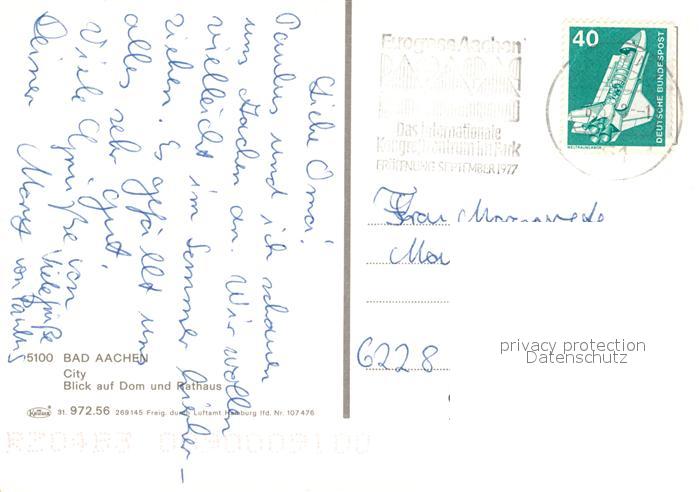 Liebe Oma!
Paulus und ich schauen
uns Aachen an. Wir wollen
vielleicht im Sommer hierher-
ziehen. Es gefällt uns
alles sehr gut.
Viele Grüße von
Deiner
Viele Grüße
von Paulus
5100 BAD AACHEN
City
Blick auf Dom und Rathaus
Krüger 31. 972.56 269145 Freig. durch Luftamt Hamburg lfd. Nr. 107476
Eurogress Aachen
Das internationale
Kongreßzentrum im Park
ERÖFFNUNG SEPTEMBER 1977
40
DEUTSCHE BUNDESPOST
WELTRAUMLABOR
Frau
6228
privacy protection
Datenschutz